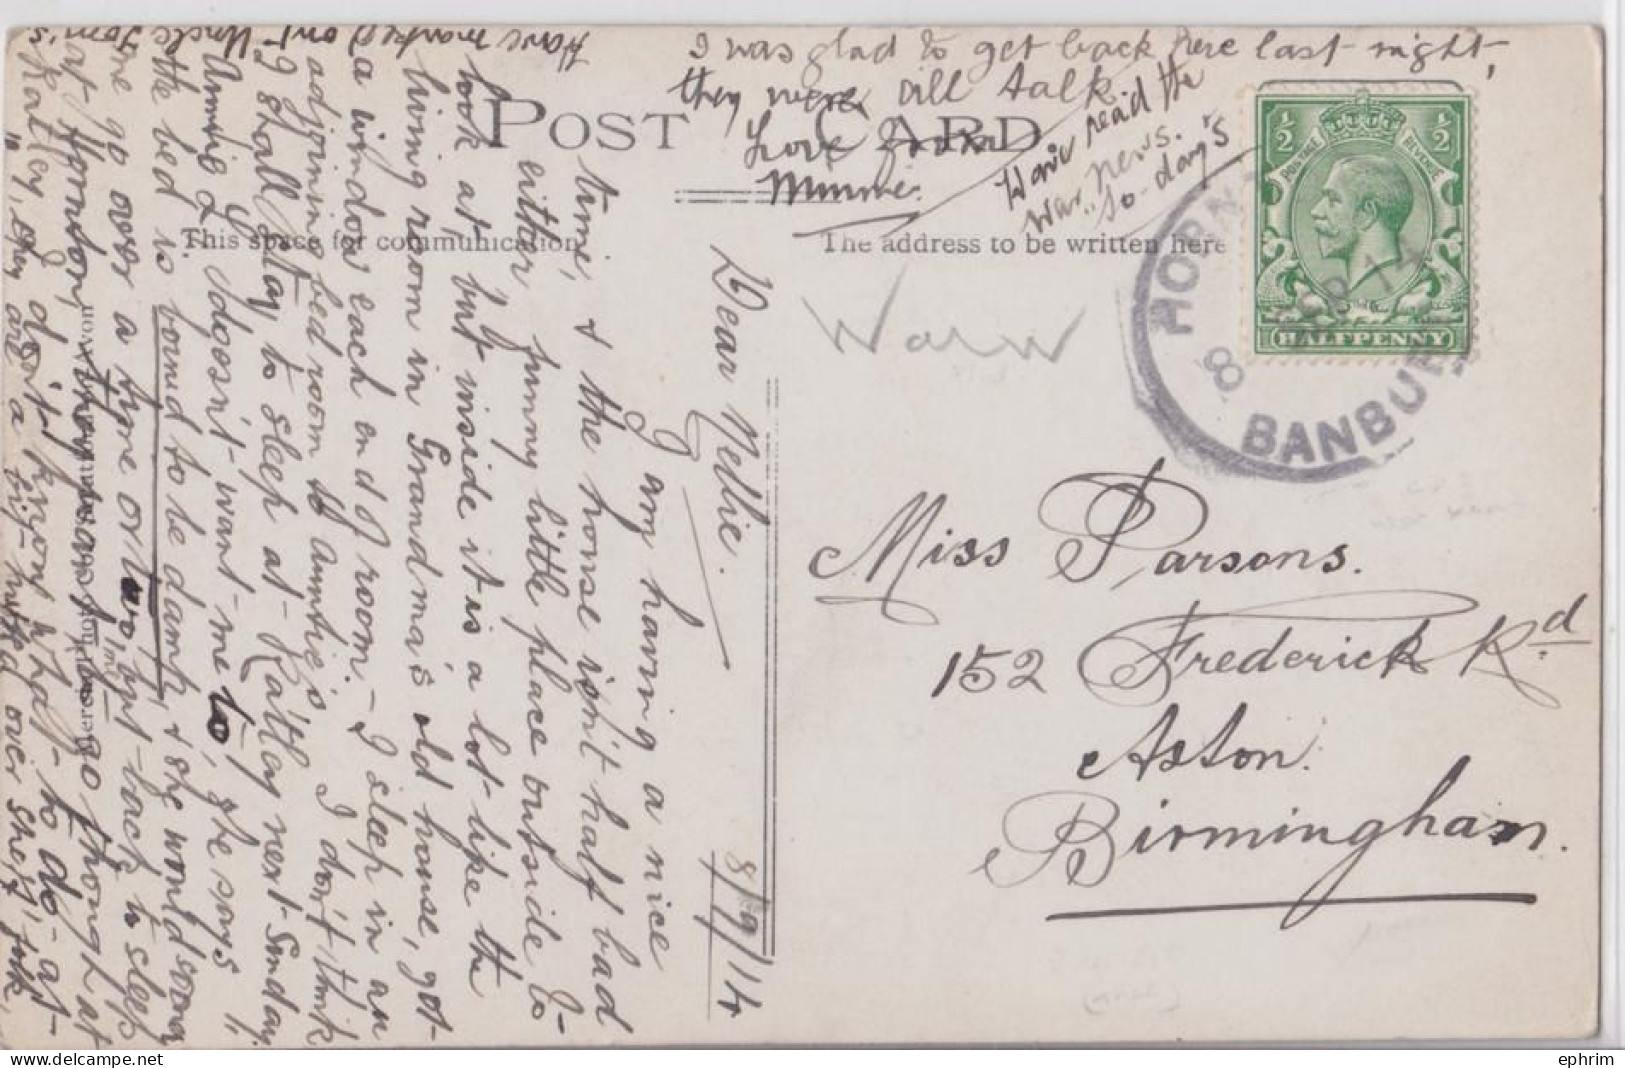 POST CARD
This space for communication
The address to be written here
8/9/14
Dear Nellie.
I am having a nice
time, & the house isn't half bad
either, funny little place outside to
look at, but inside it is a lot like the
living room in Grandma's old house, got
a window each end of room – I sleep in an
adjoining bed room to Auntie's. I don't think
I shall stay to sleep at Ratley next Sunday.
Auntie L doesn't want me to, she says
the bed is bound to be damp, & she would sooner
me go over a time or two, but back to sleep
at Hornton,
Ratley, I don't know what to do at
they are a bit
over she
Have marked
Uncle Tom's
I was glad to get back here last night,
they were all talk.
Love from
Minnie.
Have read the
war news.
to-day's
Warw
HORN
BANBU
8
½ ½
POSTAGE REVENUE
HALFPENNY
Miss Parsons.
152 Frederick Rd
Aston.
Birmingham.
ephrim